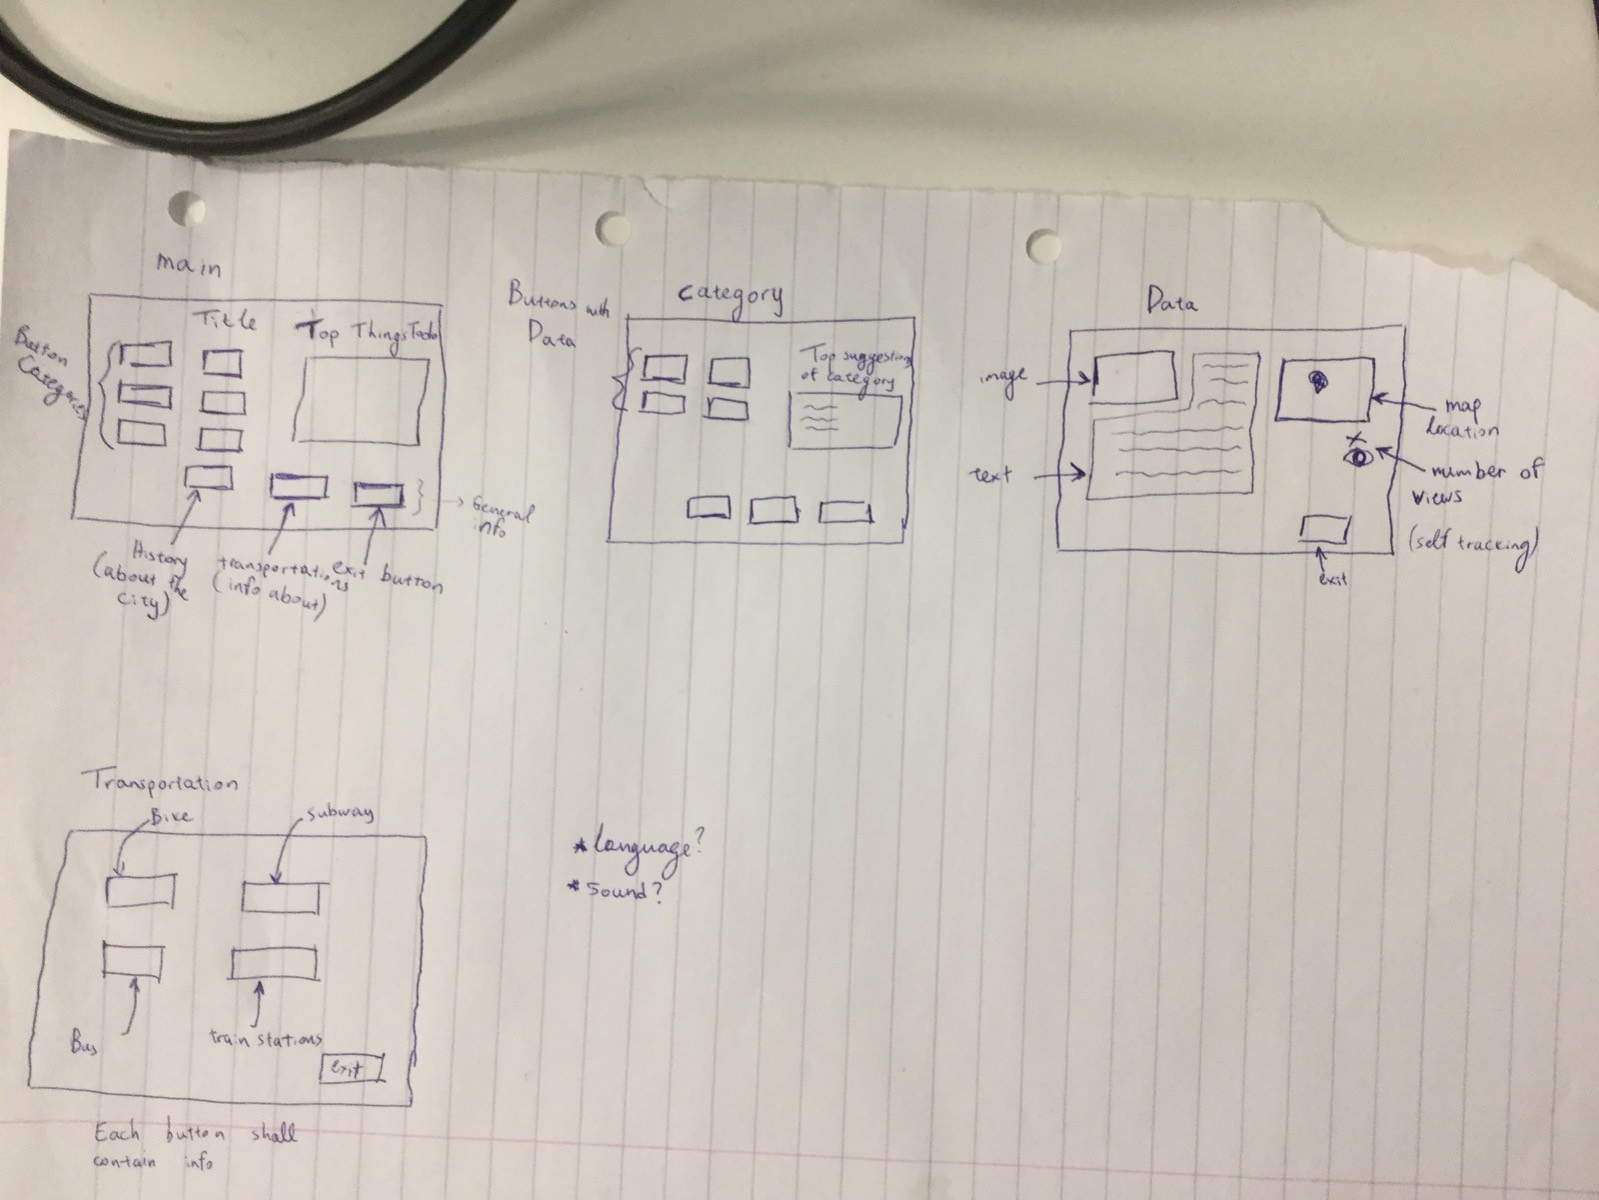 main
Title
Top Things Todo
Button
Categories
General
info
History
(about the
city)
transportations
(info about)
exit button
Category
Buttons with
Data
Top suggestions
of category
Data
image
text
map
location
number of
views
(self tracking)
exit
Transportation
Bike
subway
Bus
train stations
exit
Each button shall
contain info
* language?
* sound?